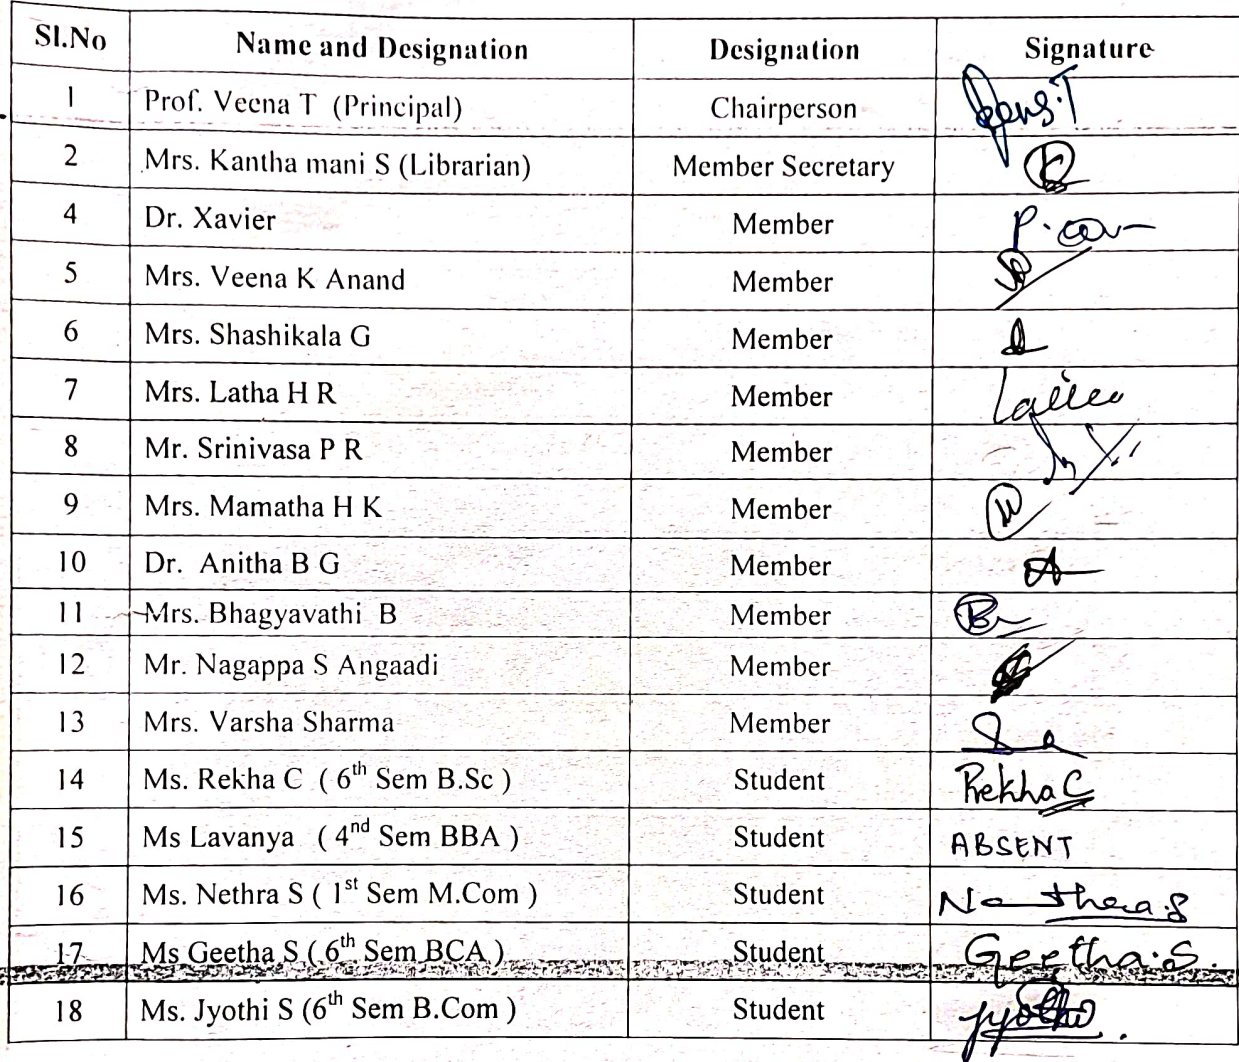 Sl.No Name and Designation Designation Signature
1 Prof. Veena T (Principal) Chairperson
2 Mrs. Kantha mani S (Librarian) Member Secretary
4 Dr. Xavier Member
5 Mrs. Veena K Anand Member
6 Mrs. Shashikala G Member
7 Mrs. Latha H R Member
8 Mr. Srinivasa P R Member
9 Mrs. Mamatha H K Member
10 Dr. Anitha B G Member
11 Mrs. Bhagyavathi B Member
12 Mr. Nagappa S Angaadi Member
13 Mrs. Varsha Sharma Member
14 Ms. Rekha C ( 6th Sem B.Sc ) Student Rekha C
15 Ms Lavanya ( 4nd Sem BBA ) Student ABSENT
16 Ms. Nethra S ( 1st Sem M.Com ) Student
17 Ms Geetha S ( 6th Sem BCA ) Student Geetha.S.
18 Ms. Jyothi S (6th Sem B.Com ) Student